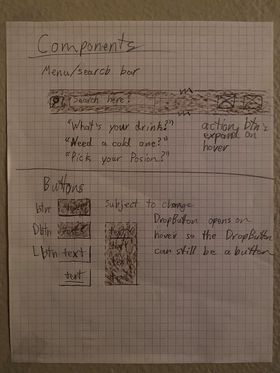 Components
Menu/search bar
Search here!
"What's your drink?"
"Need a cold one?"
"Pick your Posion?"
action btn's
expand on
hover
Buttons
btn text
Dbtn text
Lbtn text
text
Subject to change
text
text
text
DropButton opens on
hover so the DropButton
can still be a button